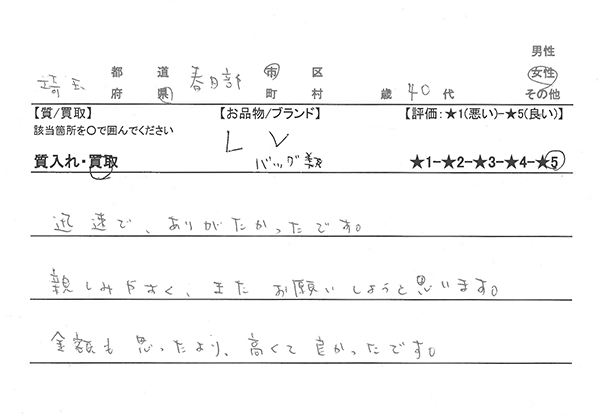 男性
埼玉 都 道 春日部 市 区 女性
府 県 町 村 歳 40 代 その他
【質/買取】 【お品物/ブランド】 【評価:★1(悪い)-★5(良い)】
該当箇所を〇で囲んでください LV
質入れ・買取 バッグ類 ★1-★2-★3-★4-★5
迅速で、ありがたかったです。
親しみやすく、またお願いしようと思います。
金額も思ったより、高くて良かったです。